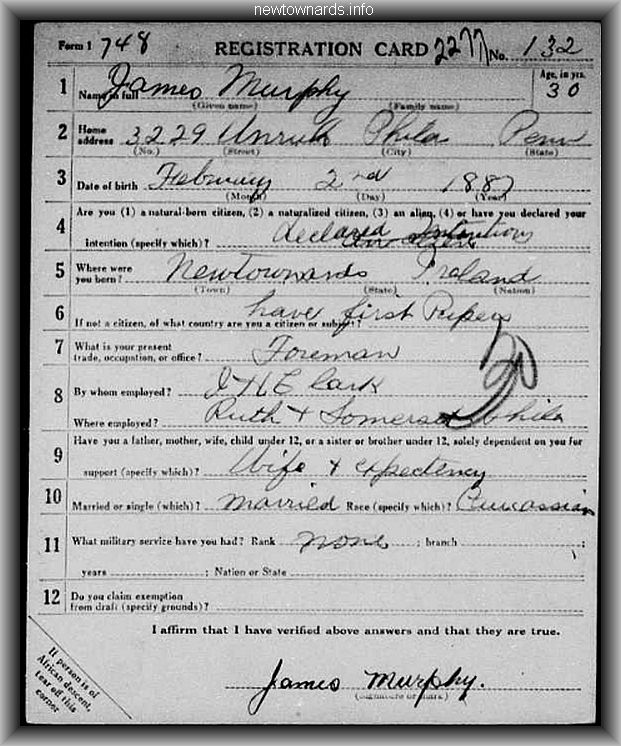 newtownards.info
Form 1 748 REGISTRATION CARD 2277 No. 132
1 Name in full James Murphy Age, in yrs. 30
(Given name) (Family name)
2 Home address 3229 Unruh Phila Penn
(No.) (Street) (City) (State)
3 Date of birth February 2nd 1887
(Month) (Day) (Year)
4 Are you (1) a natural-born citizen, (2) a naturalized citizen, (3) an alien, (4) or have you declared your
intention (specify which)? declared Intentions
5 Where were you born? Newtownards Ireland
(Town) (State) (Nation)
6 If not a citizen, of what country are you a citizen or subject? have first Papers
7 What is your present trade, occupation, or office? Foreman
8 By whom employed? J H Clark
Where employed? Ruth + Somerset Phila
9 Have you a father, mother, wife, child under 12, or a sister or brother under 12, solely dependent on you for
support (specify which)? Wife + expectency
10 Married or single (which)? married Race (specify which)? Caucassian
11 What military service have you had? Rank none ; branch ;
years ; Nation or State
12 Do you claim exemption
from draft (specify grounds)?
I affirm that I have verified above answers and that they are true.
If person is of
African descent,
tear off this
corner
James Murphy.
(Signature or mark)